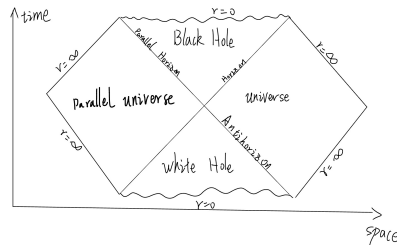 time
r=0
Black Hole
Parallel Horizon
Horizon
r=∞
r=∞
Parallel universe
universe
r=∞
r=∞
Antihorizon
White Hole
r=0
space